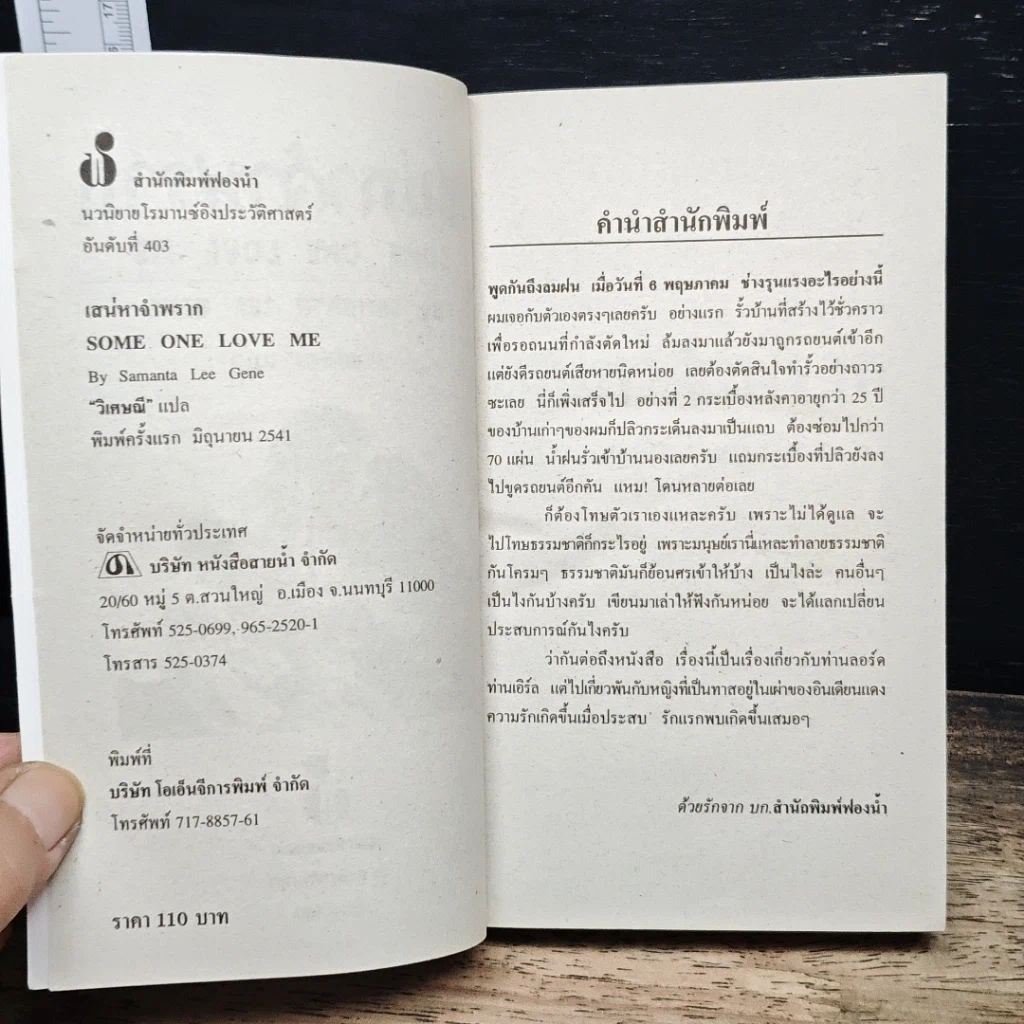 17
สำนักพิมพ์ฟองน้ำ
นวนิยายโรมานซ์อิงประวัติศาสตร์
อันดับที่ 403
เสน่หาจำพราก
SOME ONE LOVE ME
By Samanta Lee Gene
"วิเศษณี" แปล
พิมพ์ครั้งแรก มิถุนายน 2541
จัดจำหน่ายทั่วประเทศ
บริษัท หนังสือสายน้ำ จำกัด
20/60 หมู่ 5 ต.สวนใหญ่ อ.เมือง จ.นนทบุรี 11000
โทรศัพท์ 525-0699, 965-2520-1
โทรสาร 525-0374
พิมพ์ที่
บริษัท โอเอ็นจีการพิมพ์ จำกัด
โทรศัพท์ 717-8857-61
ราคา 110 บาท
คำนำสำนักพิมพ์
พูดกันถึงลมฝน เมื่อวันที่ 6 พฤษภาคม ช่างรุนแรงอะไรอย่างนี้
ผมเจอกับตัวเองตรงๆเลยครับ อย่างแรก รั้วบ้านที่สร้างไว้ชั่วคราว
เพื่อรอถนนที่กำลังตัดใหม่ ล้มลงมาแล้วยังมาถูกรถยนต์เข้าอีก
แต่ยังดีรถยนต์เสียหายนิดหน่อย เลยต้องตัดสินใจทำรั้วอย่างถาวร
ซะเลย นี่ก็เพิ่งเสร็จไป อย่างที่ 2 กระเบื้องหลังคาอายุกว่า 25 ปี
ของบ้านเก่าๆของผมก็ปลิวกระเด็นลงมาเป็นแถบ ต้องซ่อมไปกว่า
70 แผ่น น้ำฝนรั่วเข้าบ้านนองเลยครับ แถมกระเบื้องที่ปลิวยังลง
ไปขูดรถยนต์อีกคัน แหม! โดนหลายต่อเลย
ก็ต้องโทษตัวเราเองแหละครับ เพราะไม่ได้ดูแล จะ
ไปโทษธรรมชาติก็กระไรอยู่ เพราะมนุษย์เรานี่แหละทำลายธรรมชาติ
กันโครมๆ ธรรมชาติมันก็ย้อนศรเข้าให้บ้าง เป็นไงล่ะ คนอื่นๆ
เป็นไงกันบ้างครับ เขียนมาเล่าให้ฟังกันหน่อย จะได้แลกเปลี่ยน
ประสบการณ์กันไงครับ
ว่ากันต่อถึงหนังสือ เรื่องนี้เป็นเรื่องเกี่ยวกับท่านลอร์ด
ท่านเอิร์ล แต่ไปเกี่ยวพันกับหญิงที่เป็นทาสอยู่ในเผ่าของอินเดียนแดง
ความรักเกิดขึ้นเมื่อประสบ รักแรกพบเกิดขึ้นเสมอๆ
ด้วยรักจาก บก.สำนักพิมพ์ฟองน้ำ